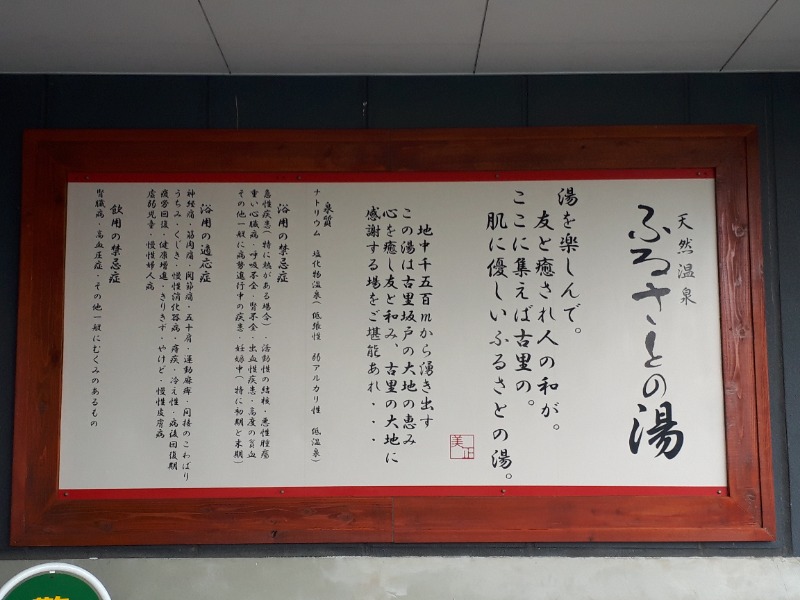 天然温泉
ふるさとの湯
湯を楽しんで。
友と癒され人の和が。
ここに集えば古里の。
肌に優しいふるさとの湯。
地中千五百mから湧き出す
この湯は古里坂戸の大地の恵み
心を癒し友と和み、古里の大地に
感謝する場をご堪能あれ・・・
美正
泉質
ナトリウム 塩化物温泉(低張性 弱アルカリ性 低温泉)
浴用の禁忌症
急性疾患(特に熱がある場合)・活動性の結核・悪性腫瘍
重い心臓病・呼吸不全・腎不全・出血性疾患・高度の貧血
その他一般に病勢進行中の疾患・妊娠中(特に初期と末期)
浴用の適応症
神経痛・筋肉痛・関節痛・五十肩・運動麻痺・関接のこわばり
うちみ・くじき・慢性消化器病・痔疾・冷え性・病後回復期
疲労回復・健康増進・きりきず・やけど・慢性皮膚病
虚弱児童・慢性婦人病
飲用の禁忌症
腎臓病・高血圧症・その他一般にむくみのあるもの